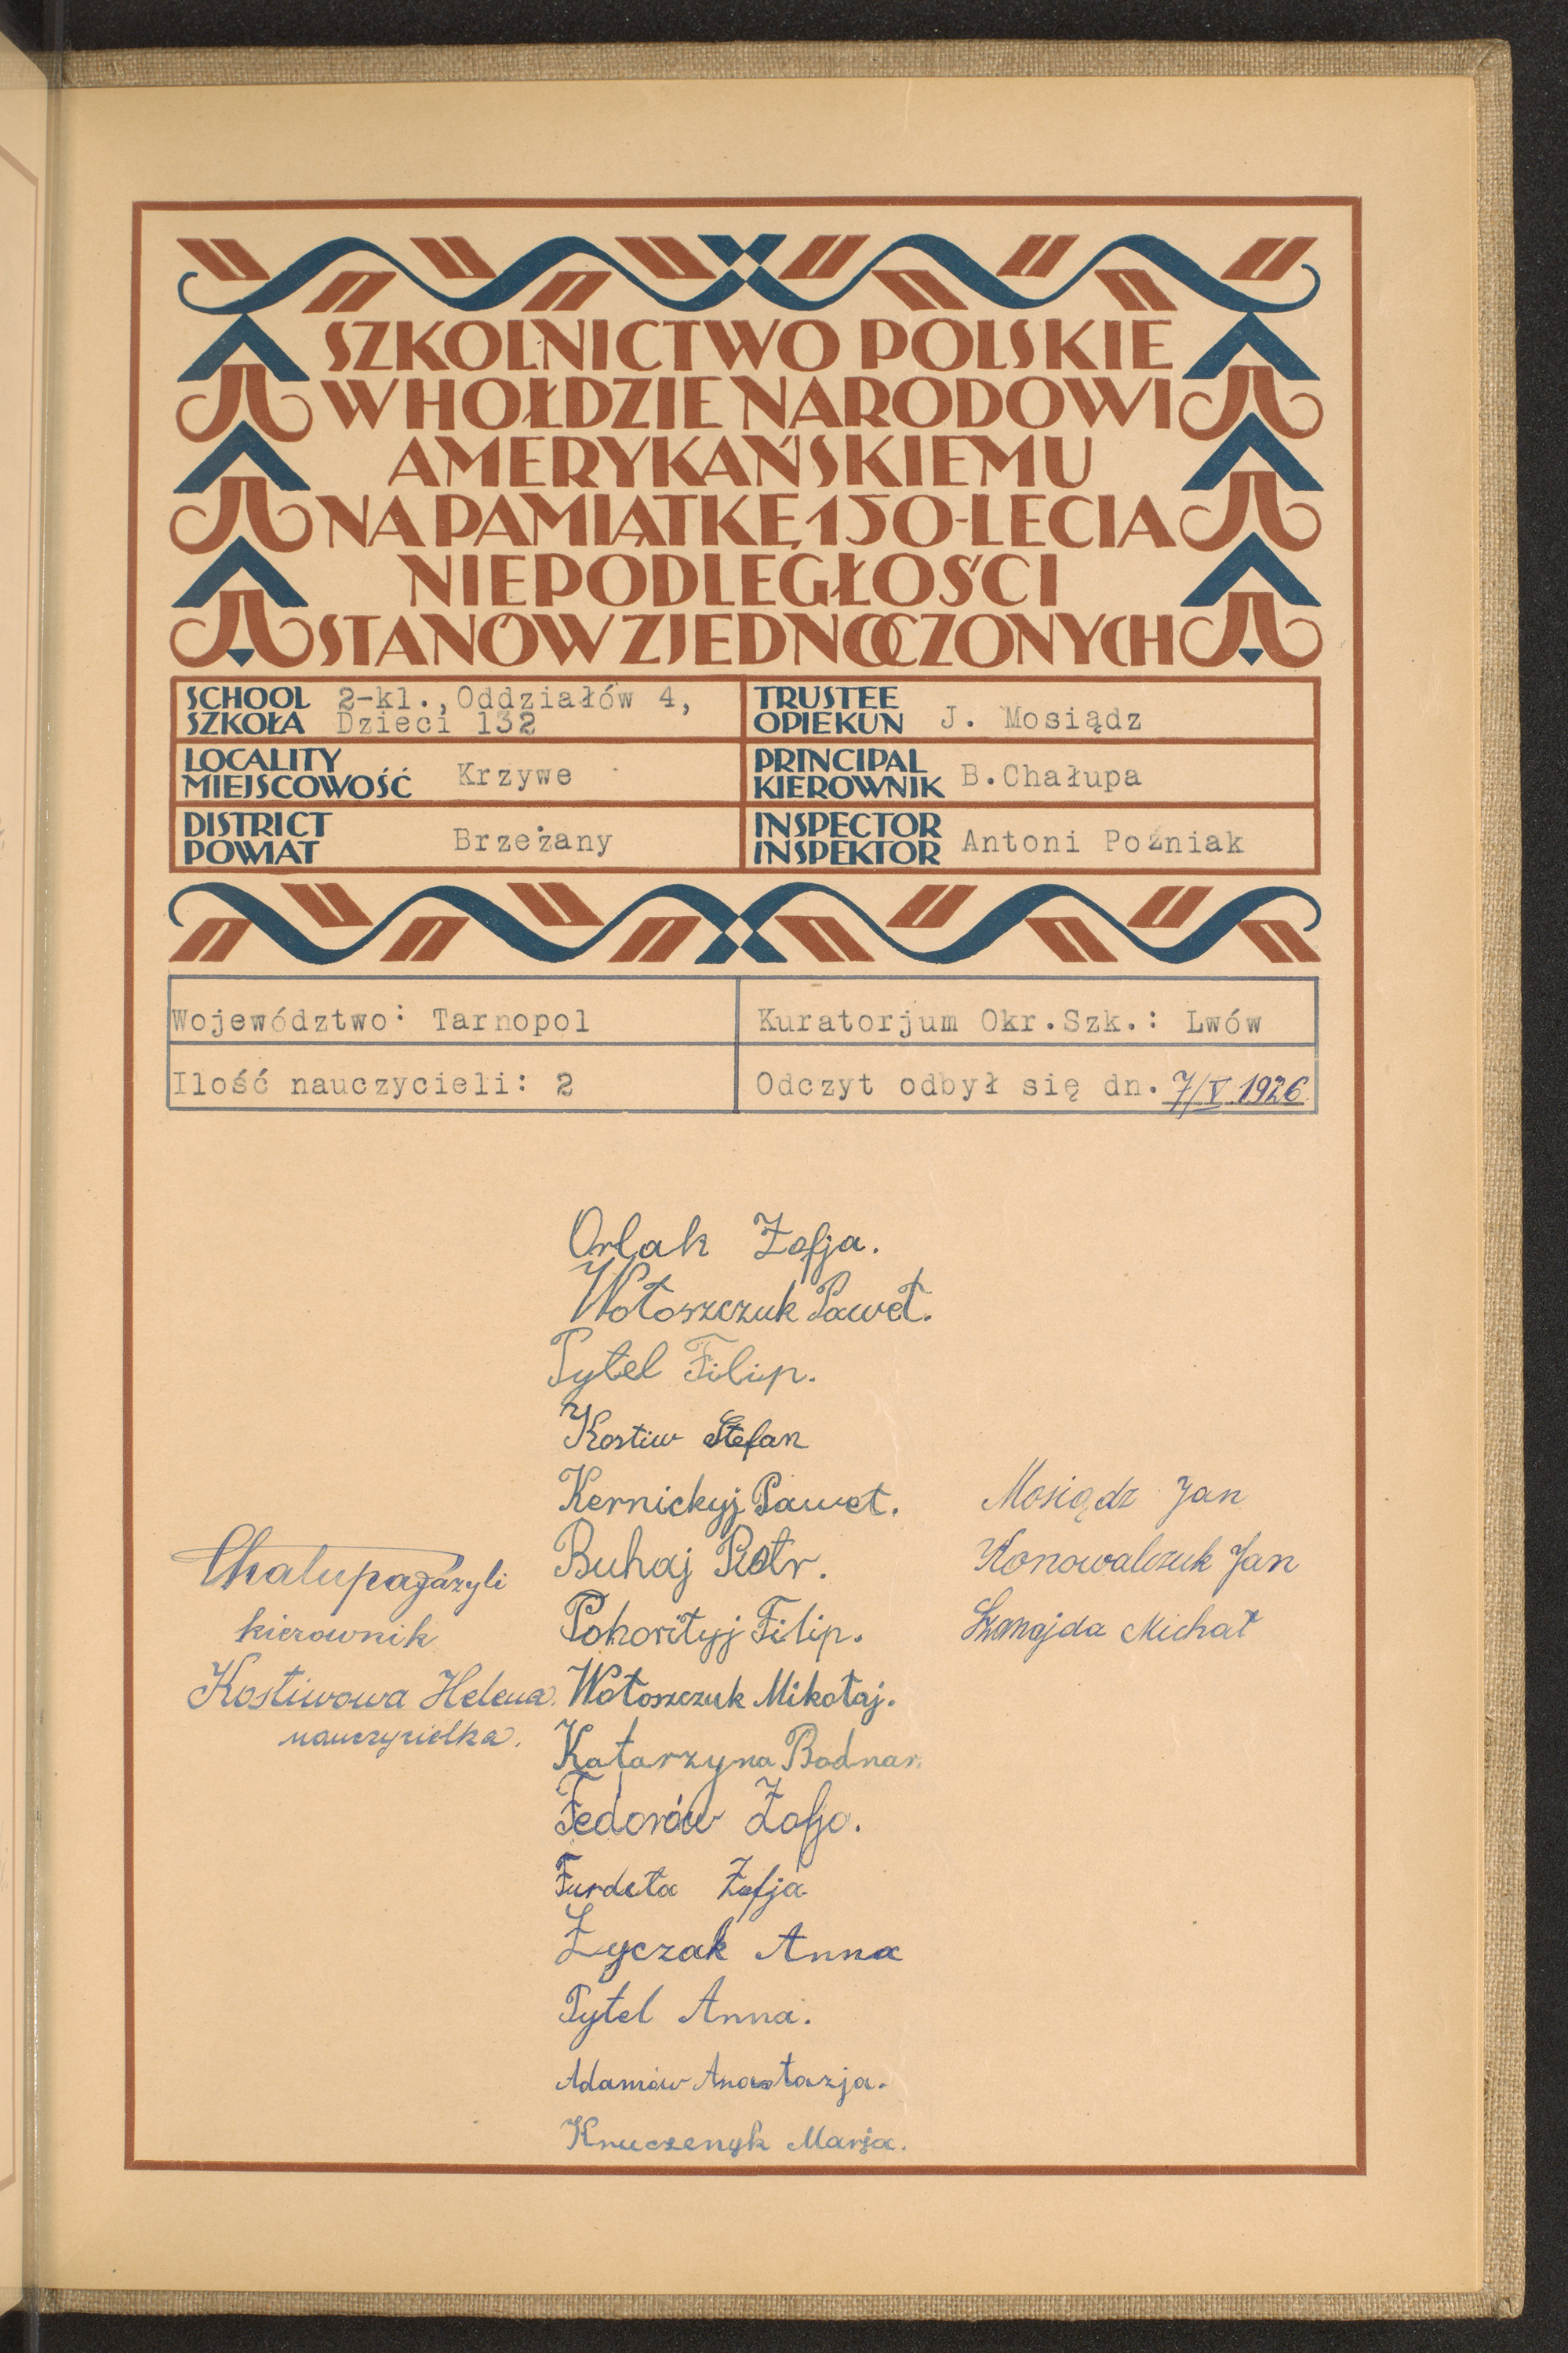 SZKOLNICTWO POLSKIE
W HOŁDZIE NARODOWI
AMERYKAŃSKIEMU
NA PAMIĄTKĘ 150-LECIA
NIEPODLEGŁOŚCI
STANÓW ZJEDNOCZONYCH
SCHOOL
SZKOŁA
2-kl., Oddziałów 4,
Dzieci 132
TRUSTEE
OPIEKUN
J. Mosiądz
LOCALITY
MIEJSCOWOŚĆ
Krzywe
PRINCIPAL
KIEROWNIK
B.Chałupa
DISTRICT
POWIAT
Brzeżany
INSPECTOR
INSPEKTOR
Antoni Poźniak
Województwo: Tarnopol
Kuratorjum Okr.Szk.: Lwów
Ilość nauczycieli: 2
Odczyt odbył się dn. 7/V 1926.
Chałupa Bazyli
kierownik
Kostiwowa Helena.
nauczycielka.
Orlak Zofja.
Wołoszczuk Paweł.
Pytel Filip.
Kostiw Stefan
Kernickyj Paweł.
Buhaj Piotr.
Pohoriłyj Filip.
Wołoszczuk Mikołaj.
Katarzyna Bodnar.
Fedorów Zofja.
Furdeła Zofja
Życzak Anna
Pytel Anna.
Adamów Anastazja.
Kruczenyk Marja.
Mosiądz Jan
Konowalczuk Jan
Michał